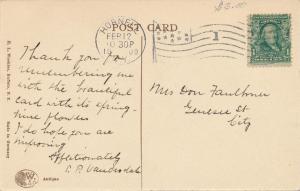 $5.00
POST CARD
HORNELL
FEB 12
10 30P
1
Thank you for
remembering me
with the beautiful
card with its spring-
time flowers
I do hope you are
improving
Affectionately
Mrs Don Faulkner
Genesee St
City
Made in Germany